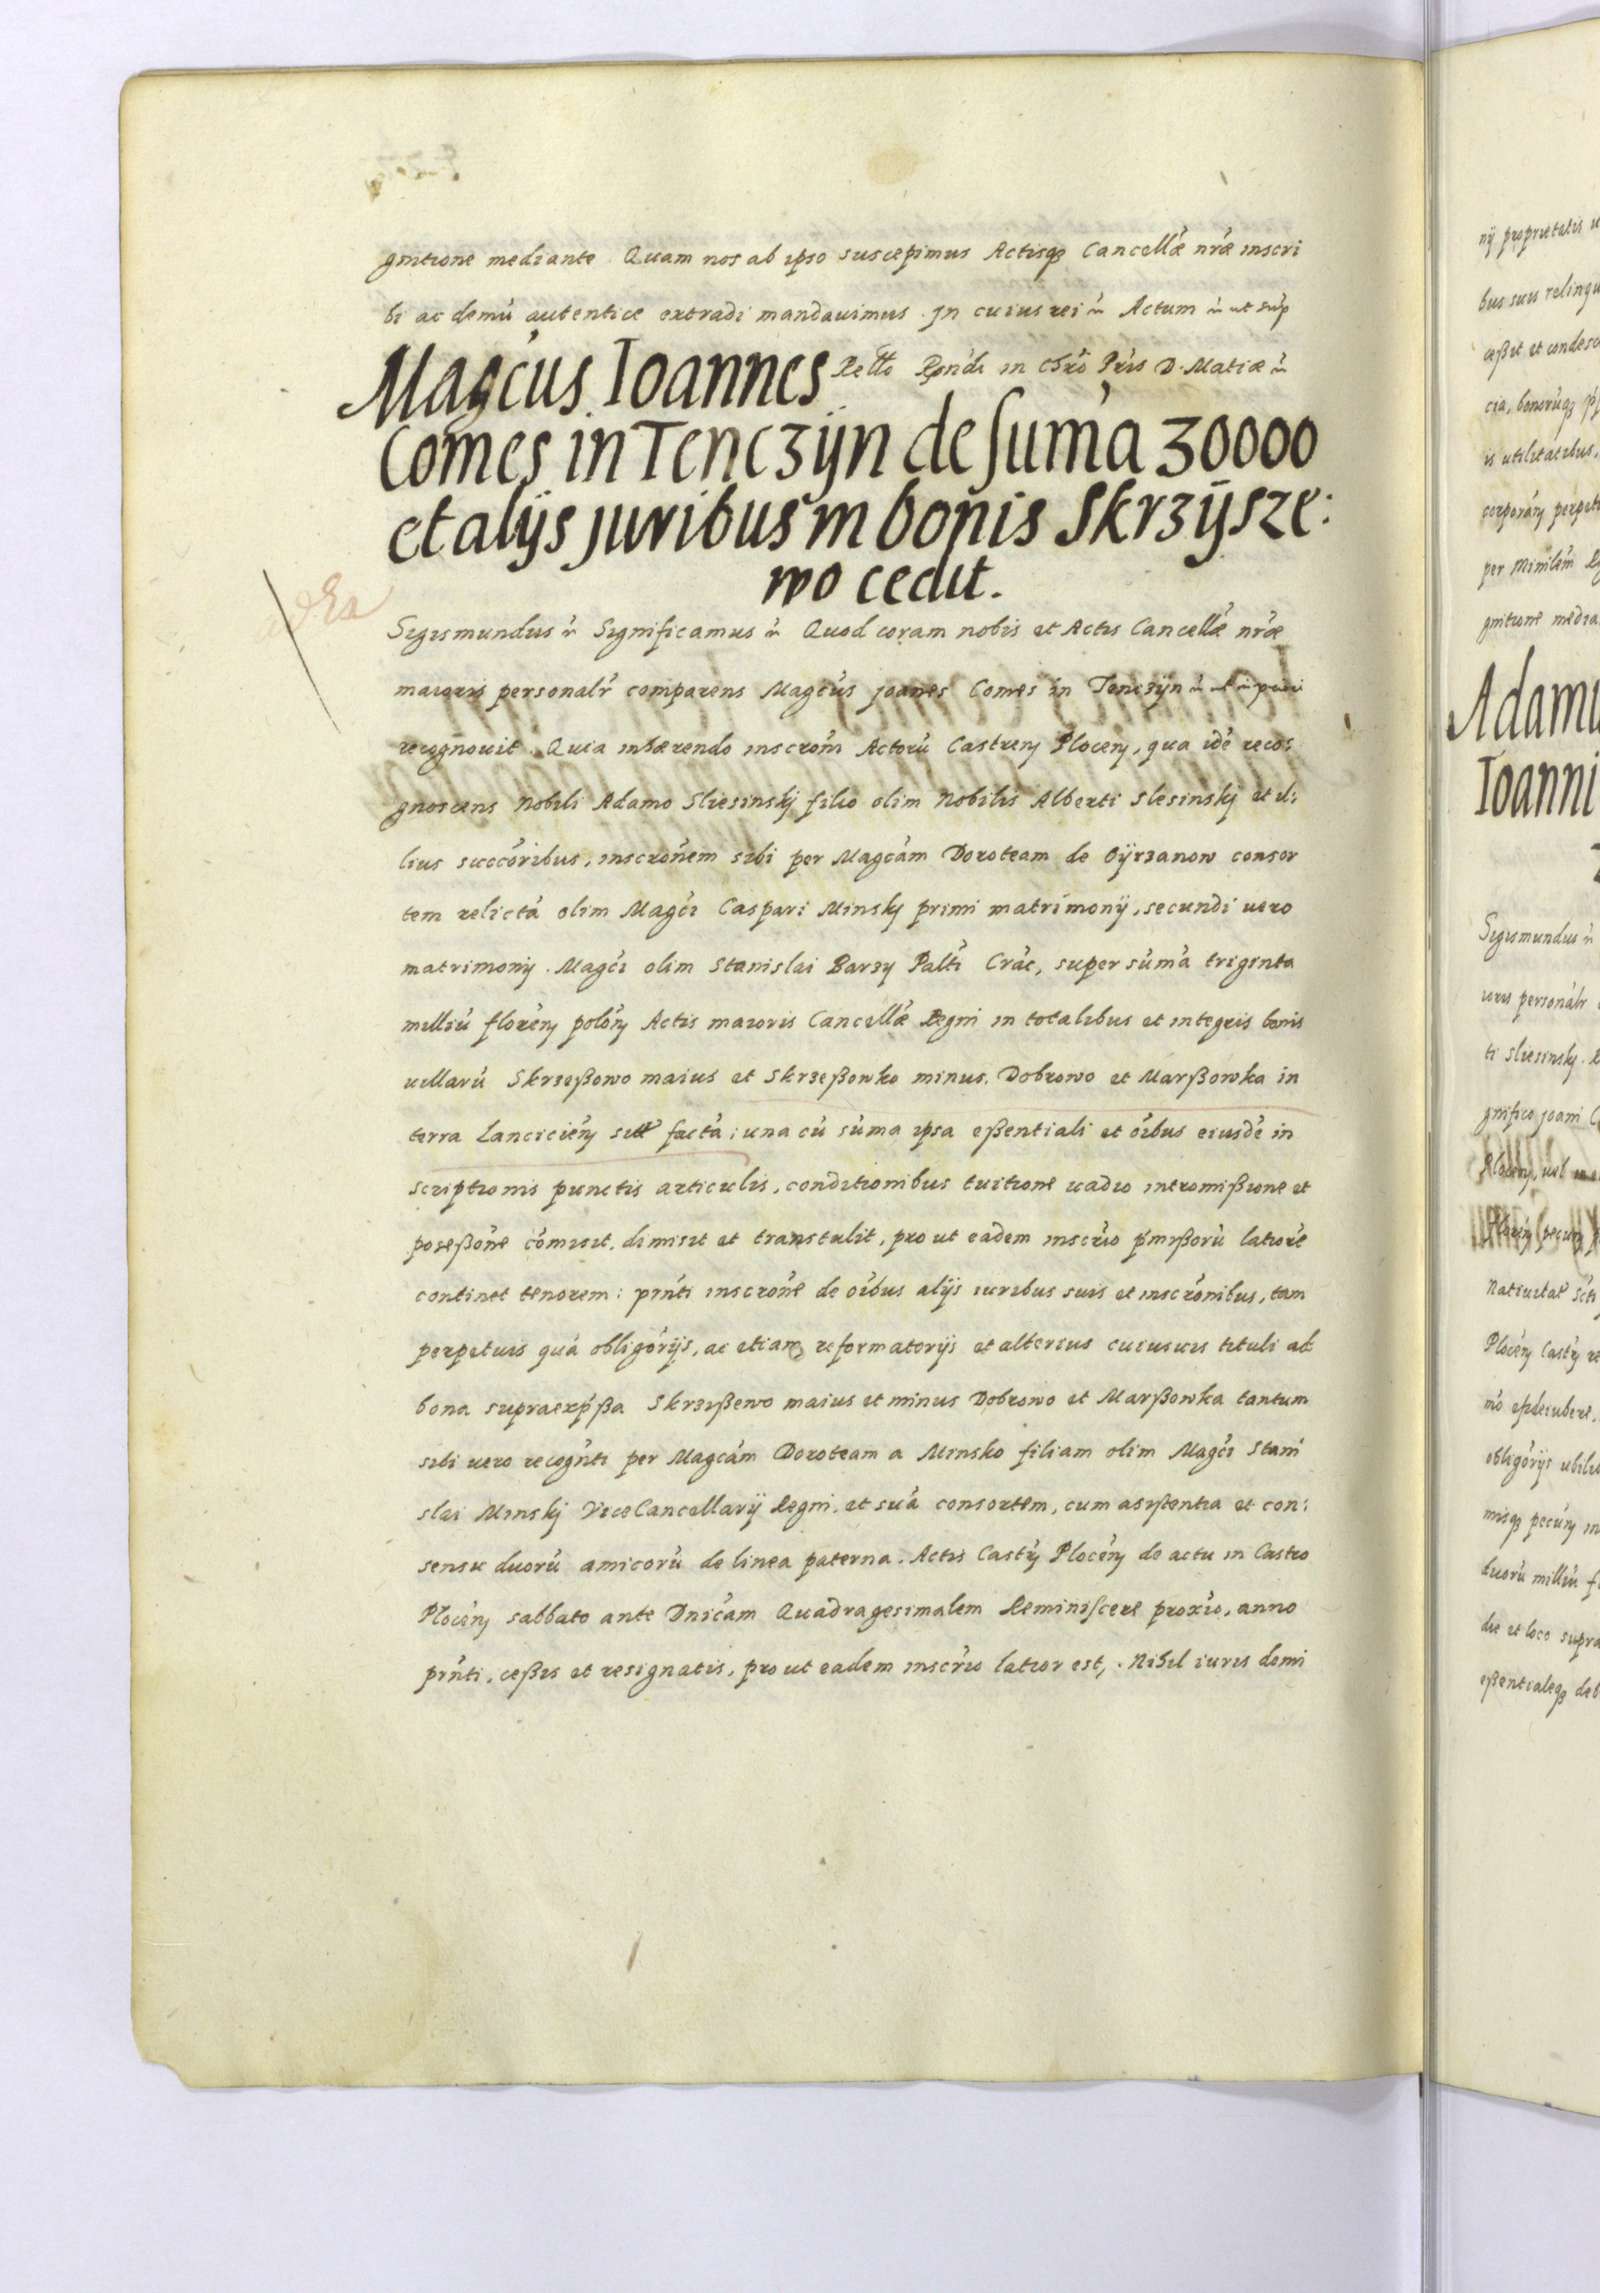 gnitione mediante. Quam nos ab ipso suscepimus Actisq₃ Cancellæ nr̃æ inscri
bi ac demũ autentice extradi mandauimus. In cuius rei Actum ut sup
Rello Rṇdi in Chrõ Pris D. Matiæ
Magcus Ioannes
Comes in Tenczÿn de sum̃a 30000
et alÿs juribus in bonis Skrzÿsze:
wo cedit.
Sigismundus Significamus Quod coram nobis et Actis Cancellæ nr̃æ
maioris personalr̃ comparens Magcus Joanes Comes in Tenczÿn
recognouit. Quia inhærendo inscrom̃ Actorũ Castreñ Ploceñ, qua idẽ recos
gnoscens Nobili Adamo Sliesinskÿ filio olim Nobilis Alberti Slesinskj et il:
lius succõribus, inscroñem sibi per Magcam Doroteam de Oÿrzanow consor
tem relictã olim Magci Caspari Minskj primi matrimonÿ, secundi uero
matrimonÿ. Magci olim Stanislai Barzy Palti Crac, super sum̃a triginta
milliũ floreñ poloñ Actis maioris Cancellæ Regni in totalibus et integris bonis
uillarũ Skrzeßowo maius et Skrzeßowko minus. Dobrowo et Marßowka in
terra Lancicieñ facta: una cũ sum̃a ipsa eßentiali et oĩbus eiusdẽ in
scriptionis punctis articulis, conditionibus tuitione uadio intromißione et
poseßõne com̃isit, dimisit et transtulit, pro ut eadem inscrio pm̃ißorũ latiorẽ
continet tenorem: pñti inscrone de oĩbus alÿs iuribus suis et inscronibus, tam
perpetuis quã obligorÿs, ac etiam reformatorÿs et alterius cuiusuis tituli ad
bona supraexpßa Skrzißewo maius et minus Dobrowo et Marßowka tantum
sibi uero recogñti per Magcam Doroteam a Minsko filiam olim Magci Stani
slai Minskj ViceCancellarÿ Regni, et suã consortem, cum asistentia et con:
sensu duorũ amicorũ de linea paterna. Actis Castr̃ Ploceñ de actu in Castro
Ploceñ sabbato ante Dnicam Quadragesimalem Reminiscere proxio, anno
pñti, ceßis et resignatis, pro ut eadem inscrio latior est,. Nihil iuris domi
nÿ proprietatis
bus suis relinqu
ceßit et condesc
cia, bonorũq₃
is utilitatibus,
corporañ perpet
per Minilem̃
gnitione media
Adamu
Ioanni
Sigismundus
ioris personalr
ti Sliesinskj.
gnifico joani C
Ploceñ, uel
Floreñ pecuñ
Natiuitate Scti
Ploceñ Castr̃ re
obligorÿs ubili
misq₃ pecuñ in
duorũ milliũ f
die et loco supra
eßentialeq₃ deb